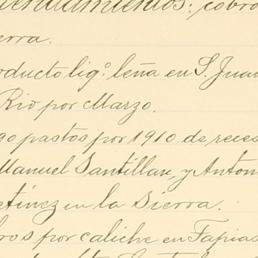 endamientos: cobro
erra.
oducto liqº leña en S. Juan
Rio por Marzo.
go pastos por 1910 de reses
Manuel Santillan, y Anton
tinez en la Sierra.
ros por caliche en Tapias